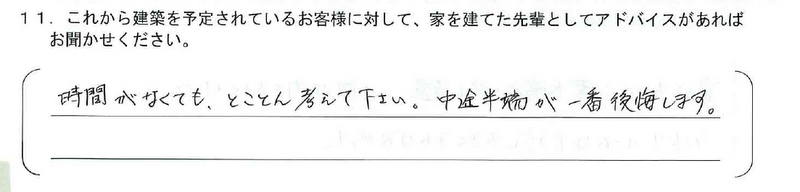 １１．これから建築を予定されているお客様に対して、家を建てた先輩としてアドバイスがあれば
お聞かせください。
時間がなくても、とことん考えて下さい。中途半端が一番後悔します。